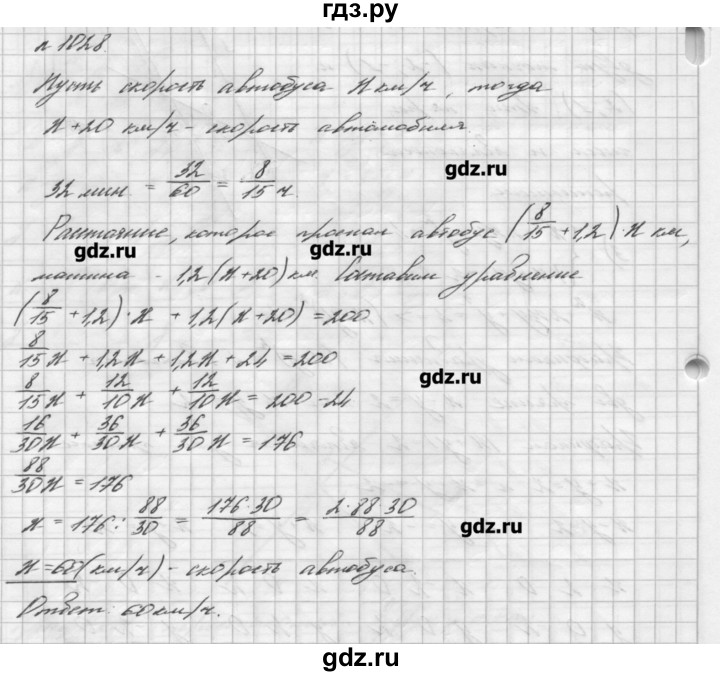 гдз.ру
№ 1028.
Пусть скорость автобуса x км/ч, тогда
x+20 км/ч - скорость автомобиля.
gdz.ru
32 мин = 32/60 = 8/15 ч.
Расстояние, которое проехал автобус (8/15 + 1,2)·x км,
gdz.ru gdz.ru
машина - 1,2(x+20) км. Составим уравнение
(8/15 + 1,2)·x + 1,2(x+20) = 200
8/15x + 1,2x + 1,2x + 24 = 200
gdz.ru
8/15x + 12/10x + 12/10x = 200-24
16/30x + 36/30x + 36/30x = 176
88/30x = 176
x = 176 : 88/30 = 176·30/88 = 2·88·30/88
gdz.ru
x=60(км/ч) - скорость автобуса.
Ответ: 60км/ч.
gdz.ru